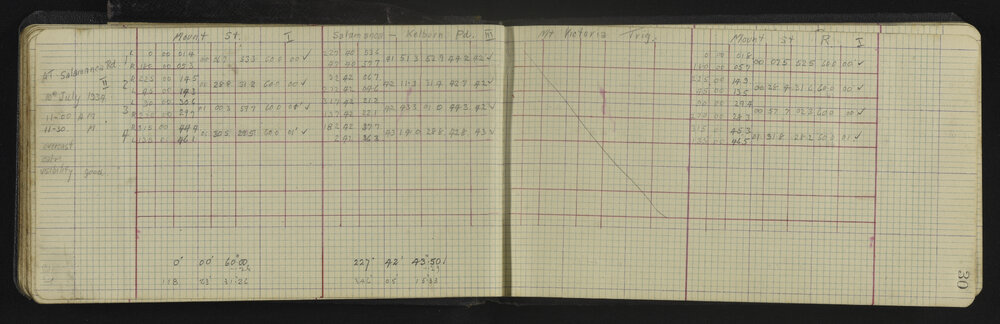 Mount St. I
Salamanca - Kelburn Rd. III
Mt Victoria Trig.
Mount St R I
AT Salamanca Rd.
II
10th July 1934
11-00 AM
11-30 M
overcast
calm
visibility good.
1 L 0 00 01.4
R 180 00 05.3
2 R 225 00 14.5
L 45 00 14.3
3 L 90 00 30.6
R 270 00 29.7
4 R 315 00 44.4
L 135 00 46.1
00 28.8 31.2 60.0 00 ✓
01 30.5 60.0 01 ✓
227 40 53.6
47 40 57.7
41 51.3 52.9 44.2 42 ✓
42 11.3 31.4 42.7 42 ✓
317 42
137 42 32.1
42 43.3 01.0 44.3 42 ✓
182 42 37.7
2 42 36.3
43 14.0 28.8 42.8 43 ✓
0 00 01.8
180 00 05.7
00 07.5 52.5 60.0 00 ✓
225 00 14.9
45 00 13.5
00 28.4 31.6 60.0 00 ✓
90 00 29.4
270 00 28.3
00 57.7 02.3 60.0 00 ✓
315 00 45.3
135 00 46.5
01 31.8 28.2 60.0 01 ✓
0° 00' 60".00
118 23 31.26
227° 42' 43".501
346 05
30